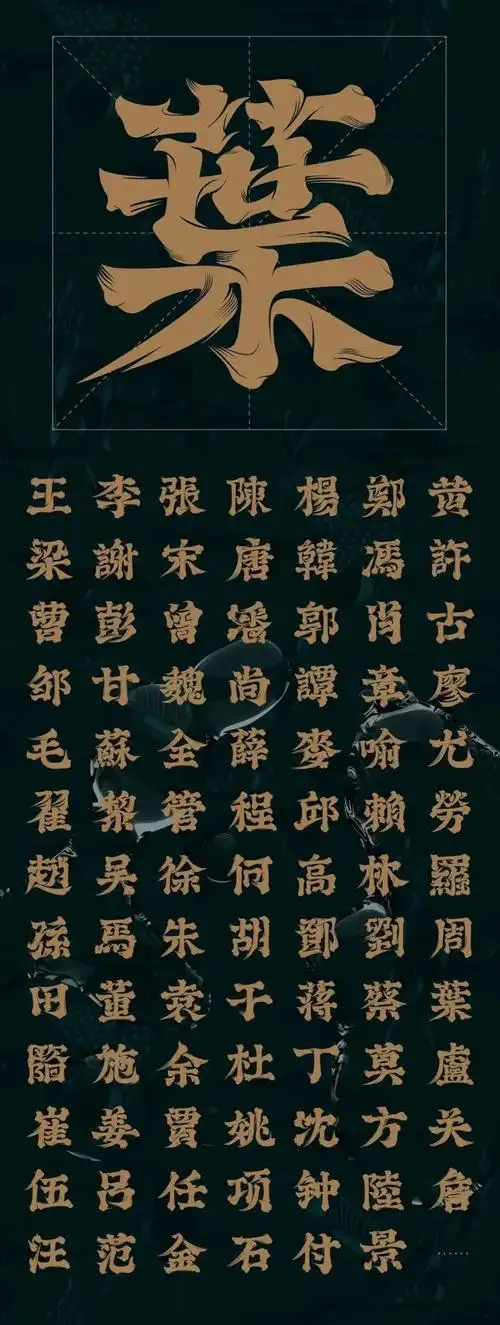 葉
王 李 張 陳 楊 鄭 黄
梁 謝 宋 唐 韓 馮 許
曹 彭 曾 潘 郭 肖 古
邹 甘 魏 尚 譚 章 廖
毛 蘇 全 薛 麥 喻 尤
翟 黎 管 程 邱 賴 勞
趙 吴 徐 何 高 林 羅
孫 馬 朱 胡 鄧 劉 周
田 董 袁 于 蒋 蔡 葉
施 余 杜 丁 莫 盧
崔 姜 賈 姚 沈 方 关
伍 吕 任 项 钟 陸 詹
汪 范 金 石 付 景 ……